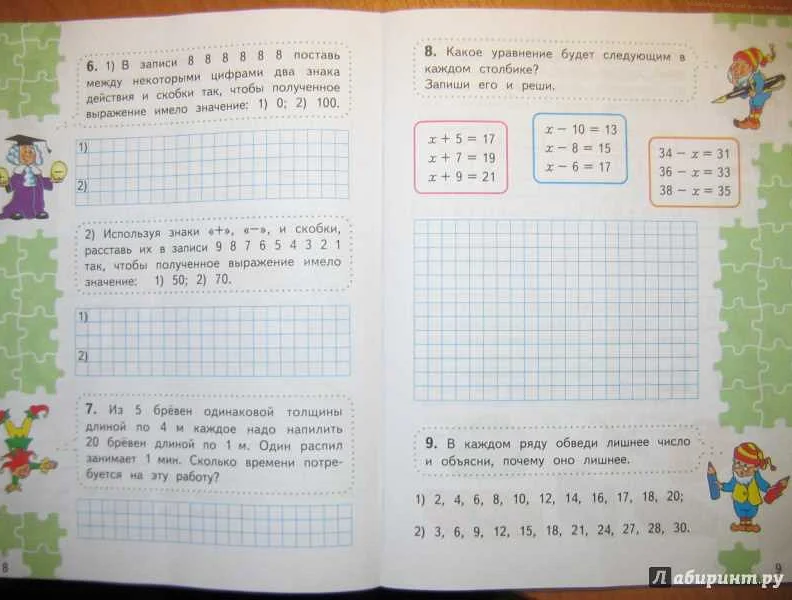 6. 1) В записи 8 8 8 8 8 8 поставь
между некоторыми цифрами два знака
действия и скобки так, чтобы полученное
выражение имело значение: 1) 0; 2) 100.
1)
2)
2) Используя знаки «+», «−», и скобки,
расставь их в записи 9 8 7 6 5 4 3 2 1
так, чтобы полученное выражение имело
значение: 1) 50; 2) 70.
1)
2)
7. Из 5 брёвен одинаковой толщины
длиной по 4 м каждое надо напилить
20 брёвен длиной по 1 м. Один распил
занимает 1 мин. Сколько времени потре-
буется на эту работу?
8
8. Какое уравнение будет следующим в
каждом столбике?
Запиши его и реши.
x + 5 = 17
x + 7 = 19
x + 9 = 21
x − 10 = 13
x − 8 = 15
x − 6 = 17
34 − x = 31
36 − x = 33
38 − x = 35
9. В каждом ряду обведи лишнее число
и объясни, почему оно лишнее.
1) 2, 4, 6, 8, 10, 12, 14, 16, 17, 18, 20;
2) 3, 6, 9, 12, 15, 18, 21, 24, 27, 28, 30.
9
Лабиринт.ру